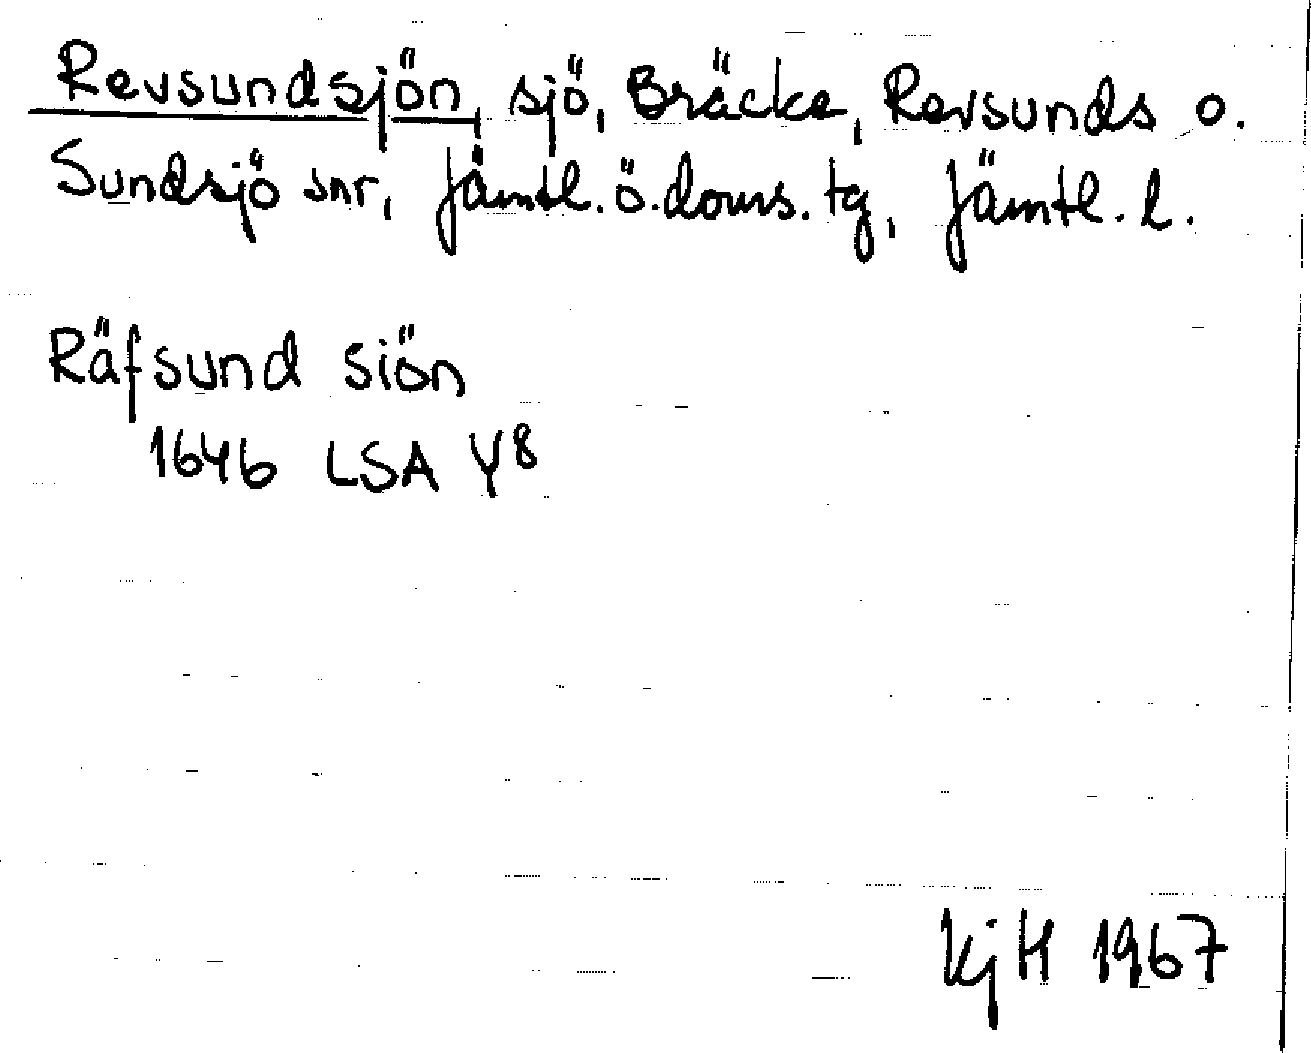 Revsundsjön, sjö, Bräcke, Revsunds o.
Sundsjö snr, Jämtl. ö. doms. tg, Jämtl. l.
Räfsund siön
1646 LSA Y8
KjH 1967